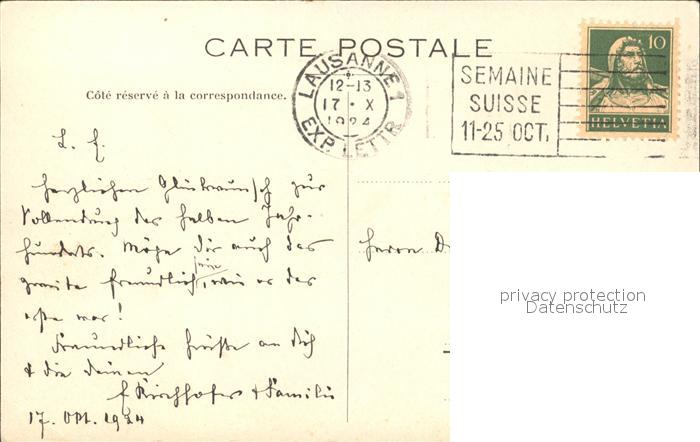 CARTE POSTALE
Côté réservé à la correspondance.
LAUSANNE 1
12-13
17 • X
1924
EXP. LETTR.
SEMAINE
SUISSE
11-25 OCT.
10
HELVETIA
L. f.
herzlichen Glückwunsch zur
Vollendung des halben Jahr-
hunderts. Möge dir auch das
zweite freundlich sein, wie es das
erste war!
Freundliche Grüsse an dich
& die deinen
f Kirchhofer & Familie
17. Okt. 1924
Herrn D
privacy protection
Datenschutz